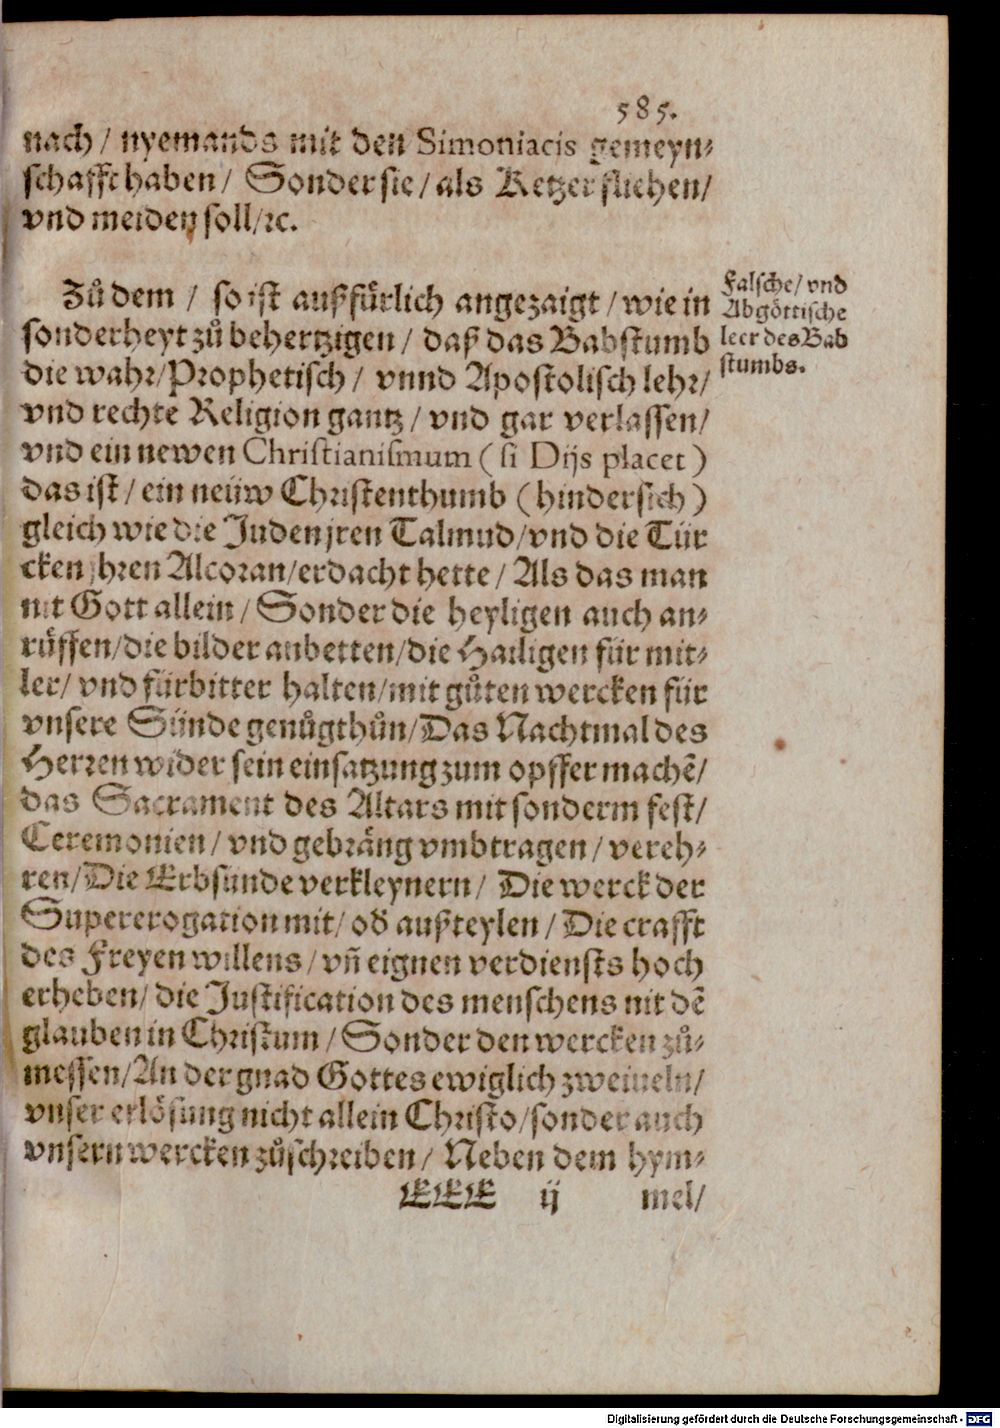 585.
nach / nyemands mit den Simoniacis gemeyn⸗
schafft haben / Sonder sie / als Ketzer fliehen /
vnd meiden soll / ꝛc.
Zů dem / so ist außfürlich angezaigt / wie in
sonderheyt zů behertzigen / daß das Babstumb
die wahr / Prophetisch / vnnd Apostolisch lehr /
vnd rechte Religion gantz / vnd gar verlassen /
vnd ein newen Christianismum ( si Dijs placet )
das ist / ein neüw Christenthumb ( hindersich )
gleich wie die Juden jren Talmud / vnd die Tür
cken jhren Alcoran / erdacht hette / Als das man
nit Gott allein / Sonder die heyligen auch an⸗
rüffen / die bilder anbetten / die Hailigen für mit⸗
ler / vnd fürbitter halten / mit gůten wercken für
vnsere Sünde genůgthůn / Das Nachtmal des
Herren wider sein einsatzung zum opffer machē /
das Sacrament des Altars mit sonderm fest /
Ceremonien / vnd gebräng vmbtragen / vereh⸗
ren / Die Erbsünde verkleynern / Die werck der
Supererogation mit / od̄ außteylen / Die crafft
des Freyen willens / vn̄ eignen verdiensts hoch
erheben / die Justification des menschens nit dē
glauben in Christum / Sonder den wercken zů⸗
messen / An der gnad Gottes ewiglich zweiueln /
vnser erlösung nicht allein Christo / sonder auch
vnsern wercken zůschreiben / Neben dem hym⸗
EEE ij mel /
Falsche / vnd
Abgöttische
leer des Bab
stumbs.
Digitalisierung gefördert durch die Deutsche Forschungsgemeinschaft - DFG